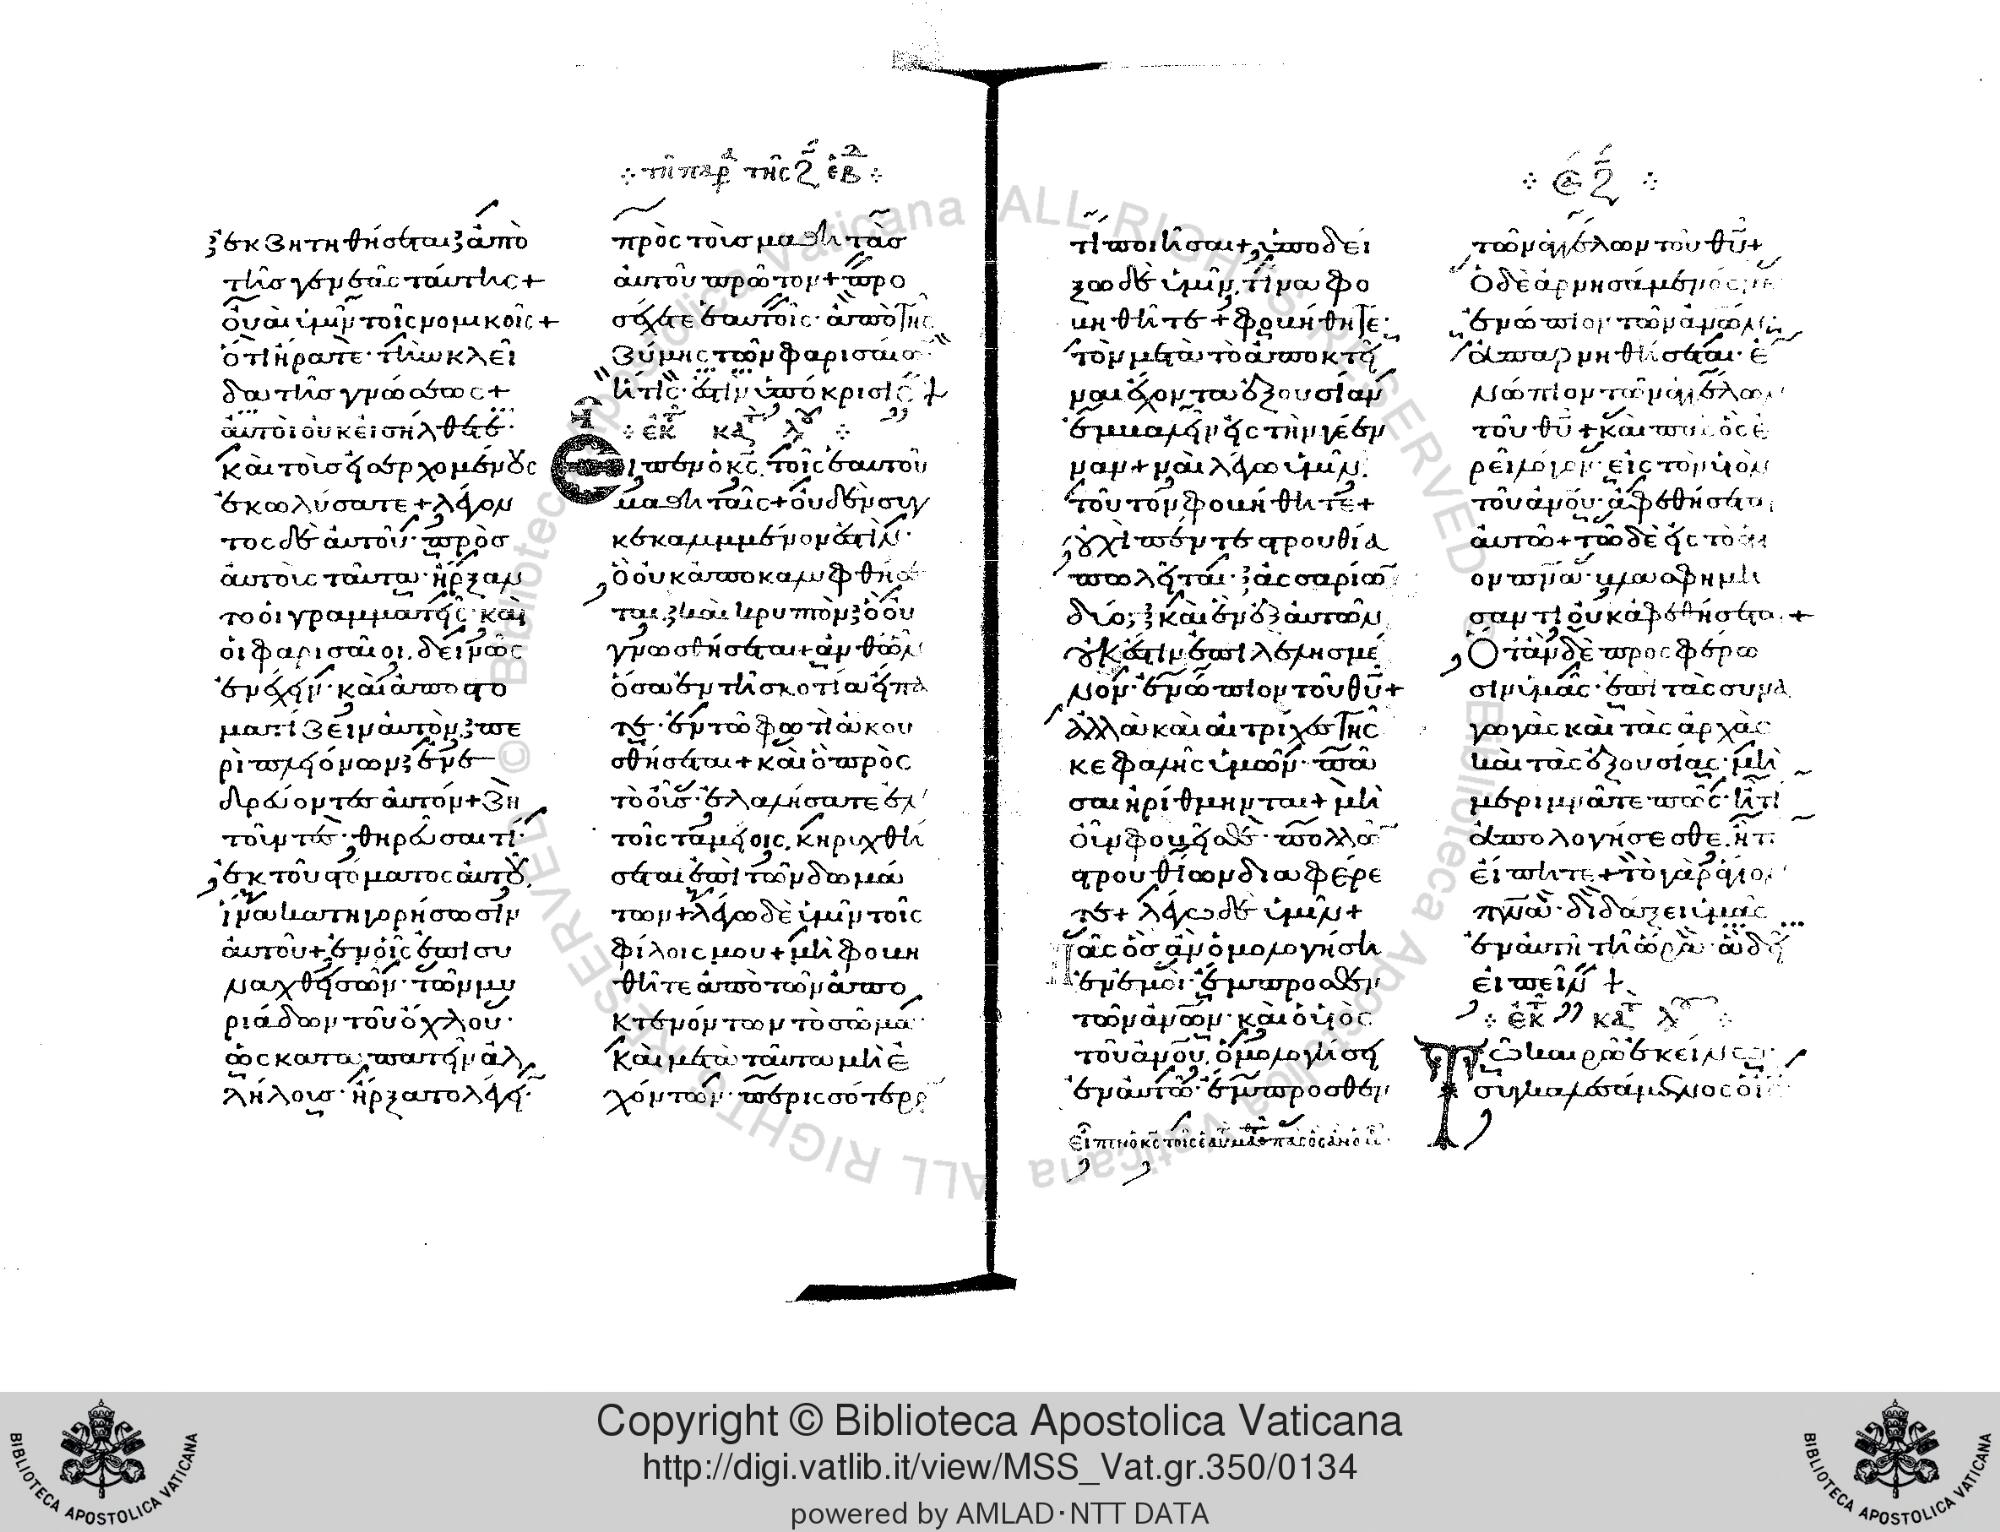 τῆ παρ τῆς ζ ἑβδ
ἐκζητηθήσεται ἀπὸ
τῆς γενεᾶς ταύτης +
οὐαὶ ὑμῖν τοῖς νομικοῖς +
ὅτι ἤρατε· τὴν κλεῖ
δα τῆς γνώσεως +
αὐτοὶ οὐκ εἰσήλθετε·
καὶ τοὺς εἰσερχομένους
ἐκωλύσατε + λέγον
τος δὲ αὐτοῦ· πρὸς
αὐτοὺς ταῦτα· ἤρξαν
το οἱ γραμματεῖς· καὶ
οἱ φαρισαῖοι. δεινῶς
ἐνέχειν· καὶ ἀποστο
ματίζειν αὐτὸν πε
ρὶ πλειόνων ἐνε
δρεύοντες αὐτόν + ζη
τοῦντες· θηρεῦσαί τι·
ἐκ τοῦ στόματος αὐτοῦ,
ἵνα κατηγορήσωσιν
αὐτοῦ + ἐν οἷς ἐπισυ
ναχθεισῶν· τῶν μυ
ριάδων τοῦ ὄχλου·
ὥστε καταπατεῖν ἀλ
λήλους· ἤρξατο λέγειν·
πρὸς τοὺς μαθητὰς
αὐτοῦ πρῶτον + προ
σέχετε ἑαυτοῖς· ἀπὸ τῆς
ζύμης τῶν φαρισαίων·
ἥτις· ἐστὶν ὑπόκρισις +
ἐκ κατ λου
Εἶπεν ὁ κς, τοῖς ἑαυτοῦ
μαθηταῖς + οὐδὲν συγ
κεκαλυμμένον ἐστὶν·
ὃ οὐκ ἀποκαλυφθήσε
ται καὶ κρυπτὸν ὃ οὐ
γνωσθήσεται + ἀνθ' ὧν
ὅσα ἐν τῆ σκοτία εἴπα
τε· ἐν τῶ φωτὶ ἀκου
σθήσεται + καὶ ὃ πρὸς
τὸ οὖς· ἐλαλήσατε ἐν
τοῖς ταμείοις, κηρυχθή
σεται ἐπὶ τῶν δωμά
των + λέγω δὲ ὑμῖν τοῖς
φίλοις μου + μὴ φοβη
θῆτε ἀπὸ τῶν ἀπο
κτενόντων τὸ σῶμα·
καὶ μετὰ ταῦτα μὴ ἐ
χόντων· περισσότερον
τὶ ποιῆσαι + ὑποδεί
ξω δὲ ὑμῖν, τίνα φο
βηθῆτε + φοβήθητε·
τὸν μετὰ τὸ ἀποκτεῖ
ναι ἔχοντα ἐξουσίαν
ἐμβαλεῖν εἰς τὴν γέεν
ναν + ναὶ λέγω ὑμῖν,
τοῦτον φοβήθητε +
οὐχὶ πέντε στρουθία
πωλεῖται· ἀσσαρίων
δύο; καὶ ἓν ἐξ αὐτῶν
οὐκ ἔστιν ἐπιλελησμέ
νον· ἐνώπιον τοῦ θυ +
ἀλλὰ καὶ αἱ τρίχες τῆς
κεφαλῆς ὑμῶν· πᾶ
σαι ἠρίθμηνται + μὴ
οὖν φοβεῖσθε· πολλῶν
στρουθίων διαφέρε
τε + λέγω δὲ ὑμῖν +
Πᾶς ὃς ἂν ὁμολογήση
ἐν ἐμοὶ· ἔμπροσθεν
τῶν ἀνῶν· καὶ ὁ υἱὸς
τοῦ ἀνου, ὁμολογήσει
ἐν αὐτῶ· ἔμπροσθεν
εἶπεν ὁ κς τοῖς ἑαυ μαθ πᾶς ὃς ἂν ὁμ
τῶν ἀγγέλων τοῦ θυ +
Ὁ δὲ ἀρνησάμενός με
ἐνώπιον τῶν ἀνων·
ἀπαρνηθήσεται· ἐ
νώπιον τῶν ἀγγέλων
τοῦ θυ + καὶ πᾶς ὃς ἐ
ρεῖ λόγον· εἰς τὸν υἱὸν
τοῦ ἀνου· ἀφεθήσεται
αὐτῶ + τῶ δὲ εἰς τὸ ἅγι
ον πνα· βλασφημή
σαντι οὐκ ἀφεθήσεται +
Ὅταν δὲ προσφέρω
σιν ὑμᾶς· ἐπὶ τὰς συνα
γωγὰς καὶ τὰς ἀρχὰς
καὶ τὰς ἐξουσίας· μὴ
μεριμνᾶτε πῶς· ἢ τί
ἀπολογήσεσθε, ἢ τι
εἴπητε + τὸ γὰρ ἅγιον
πνα· διδάξει ὑμᾶς
ἐν αὐτῆ τῆ ὥρα· ἃ δεῖ
εἰπεῖν +
ἐκ κατ λ
Τῶ καιρῶ ἐκείνω·
συγκαλεσάμενος ὁ ις